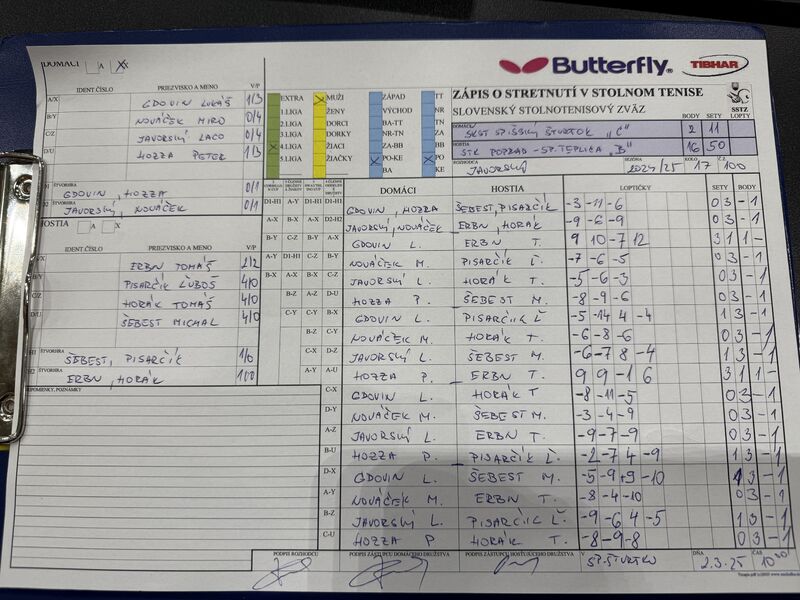 DOMÁCI A X
IDENT ČÍSLO PRIEZVISKO A MENO V/P
A/X GDOVIN LUKÁŠ 1/3
B/Y NOVÁČEK MIRO 0/4
C/Z JAVORSKÝ LACO 0/4
D/U HOZZA PETER 1/3
ŠTVORHRA
GDOVIN, HOZZA 0/1
JAVORSKÝ, NOVÁČEK 0/1
HOSTIA A X
IDENT ČÍSLO PRIEZVISKO A MENO V/P
ERBN TOMÁŠ 2/2
PISARČÍK ĽUBOŠ 4/0
HORÁK TOMÁŠ 4/0
ŠEBEST MICHAL 4/0
ŠTVORHRA
ŠEBEST, PISARČÍK 1/0
ŠTVORHRA
ERBN, HORÁK 1/0
PRIPOMIENKY, POZNÁMKY
Butterfly TIBHAR
EXTRA
1.LIGA
2.LIGA
3.LIGA
4.LIGA
5.LIGA
MUŽI
ŽENY
DORCI
DORKY
ŽIACI
ŽIAČKY
ZÁPAD
VÝCHOD
BA-TT
NR-TN
ZA-BB
PO-KE
BA
TT
NR
TN
ZA
BB
PO
KE
ZÁPIS O STRETNUTÍ V STOLNOM TENISE
SLOVENSKÝ STOLNOTENISOVÝ ZVÄZ
SSTZ
BODY SETY LOPTY
DOMÁCI SKST SPIŠSKÝ ŠTVRTOK "C" 2 11
HOSTIA STK POPRAD - SP. TEPLICA "B" 16 50
ROZHODCA JAVORSKÝ SEZÓNA 2024/25 KOLO 17 Č
DOMÁCI HOSTIA LOPTIČKY SETY BODY
D1-H1 A-Y D1-H1 D1-H1 GDOVIN, HOZZA ŠEBEST, PISARČÍK -3 -11 -6 0 3 -1
A-X B-X A-X D2-H2 JAVORSKÝ, NOVÁČEK ERBN, HORÁK -9 -6 -9 0 3 -1
B-Y C-Z B-Y A-X GDOVIN L. ERBN T. 9 10 -7 12 3 1 1 -
A-Y D1-H1 C-Z B-Y NOVÁČEK M. PISARČÍK Ľ. -7 -6 -5 0 3 -1
B-X A-X B-X C-Z JAVORSKÝ L. HORÁK T. -5 -6 -3 0 3 -1
B-Z A-Z D-U HOZZA P. ŠEBEST M. -8 -9 -6 0 3 -1
C-Y C-Y B-X GDOVIN L. PISARČÍK Ľ. -5 -14 4 -4 1 3 -1
B-Z C-Y NOVÁČEK M. HORÁK T. -6 -8 -6 0 3 -1
C-X D-Z JAVORSKÝ L. ŠEBEST M. -6 -7 8 -4 1 3 -1
A-Y A-U HOZZA P. ERBN T. 9 9 -1 6 3 1 1 -
C-X GDOVIN L. HORÁK T. -8 -11 -5 0 3 -1
D-Y NOVÁČEK M. ŠEBEST M. -3 -4 -9 0 3 -1
A-Z JAVORSKÝ L. ERBN T. -9 -7 -9 0 3 -1
B-U HOZZA P. PISARČÍK Ľ. -2 -7 4 -9 1 3 -1
D-X GDOVIN L. ŠEBEST M. -5 -9 +9 -10 1 3 -1
A-Y NOVÁČEK M. ERBN T. -8 -4 -10 0 3 -1
B-Z JAVORSKÝ L. PISARČÍK Ľ. -9 -6 4 -5 1 3 -1
C-U HOZZA P. HORÁK T. -8 -9 -8 0 3 -1
PODPIS ROZHODCU PODPIS ZÁSTUPCU DOMÁCEHO DRUŽSTVA PODPIS ZÁSTUPCU HOSŤUJÚCEHO DRUŽSTVA V SP. ŠTVRTKU DŇA 2.3.25 ČAS 10